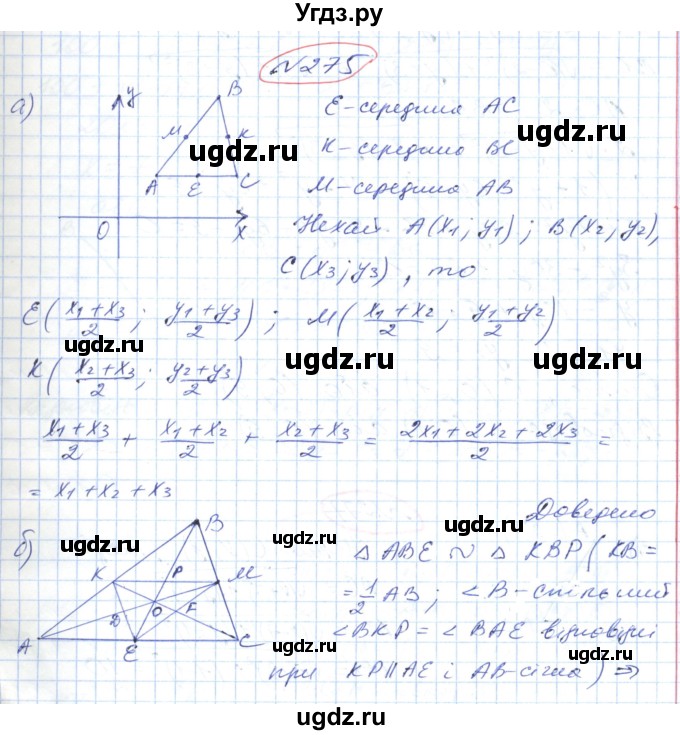 Угдз.ру
N 275
а)
y
B
M
K
A
E
C
O
x
E-середина AC
K-середина BC
M-середина AB
Нехай A(x1; y1); B(x2; y2),
C(x3; y3), то
E((x1+x3)/2; (y1+y3)/2); M((x1+x2)/2; (y1+y2)/2)
K((x2+x3)/2; (y2+y3)/2)
(x1+x3)/2 + (x1+x2)/2 + (x2+x3)/2 = (2x1+2x2+2x3)/2 =
= x1+x2+x3
Доведено
б)
B
K
P
M
D
O
F
A
E
C
△ ABE ~ △ KBP (KB =
= 1/2 AB; ∠B-спільний
∠BKP = ∠BAE відповідні
при KP || AE і AB-січна) ⇒
ugdz.ru
ugdz.ru
ugdz.ru
ugdz.ru
ugdz.ru
ugdz.ru
ugdz.ru
ugdz.ru
ugdz.ru
ugdz.ru
ugdz.ru
ugdz.ru
ugdz.ru
ugdz.ru